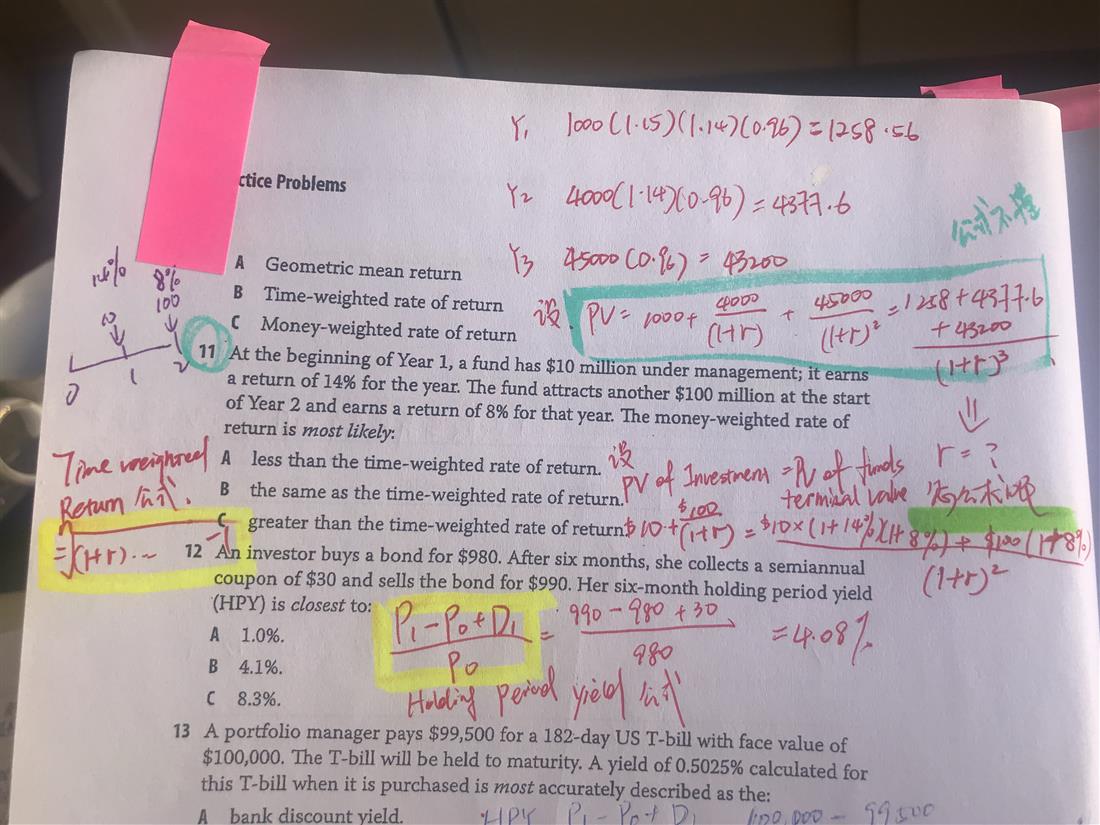 Y₁ 1000(1.15)(1.14)(0.96)=1258.56
ctice Problems
Y2 4000(1.14)(0.96)=4377.6
公式不懂
A Geometric mean return
Y3 45000(0.96) = 43200
B Time-weighted rate of return
C Money-weighted rate of return
设. PV = 1000+ 4000/(1+r) + 45000/(1+r)² = 1258+4377.6+43200/(1+r)³
14% 8%
100
10
0 1 2
11 At the beginning of Year 1, a fund has $10 million under management; it earns
a return of 14% for the year. The fund attracts another $100 million at the start
of Year 2 and earns a return of 8% for that year. The money-weighted rate of
return is most likely:
⇓
r = ?
Time weighted
Return 公式.
=√(1+r)... -1
A less than the time-weighted rate of return.
B the same as the time-weighted rate of return.
C greater than the time-weighted rate of return.
设
PV of Investment = PV of funds
terminal value
$10 + $100/(1+r) = $10×(1+14%)(1+8%) + $100(1+8%)/(1+r)²
12 An investor buys a bond for $980. After six months, she collects a semiannual
coupon of $30 and sells the bond for $990. Her six-month holding period yield
(HPY) is closest to:
P₁-P₀+D₁/P₀ = 990-980+30/980 = 4.08%
A 1.0%.
B 4.1%.
C 8.3%.
Holding period yield 公式
13 A portfolio manager pays $99,500 for a 182-day US T-bill with face value of
$100,000. The T-bill will be held to maturity. A yield of 0.5025% calculated for
this T-bill when it is purchased is most accurately described as the:
A bank discount yield.
HPY P₁-P₀+D₁ 100,000 - 99500